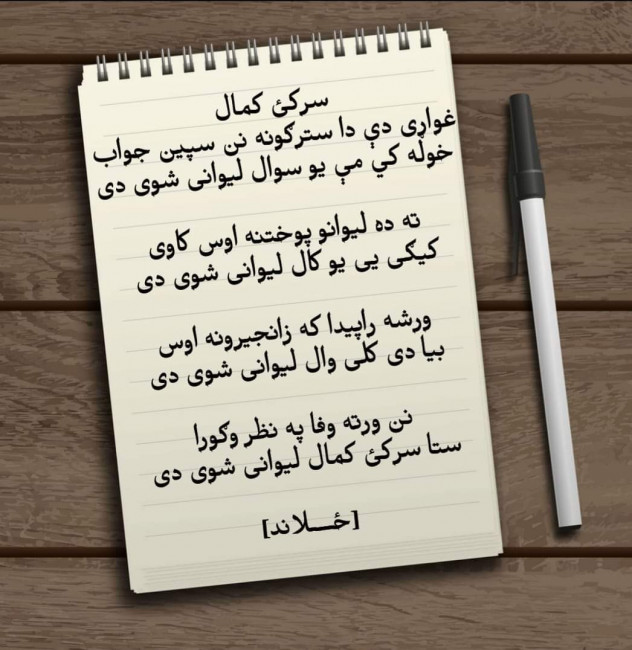 سرکئ کمال
غواړی دې دا سترګونه نن سپین جواب
خوله کي مې یو سوال لیوانی شوی دی
ته ده لیوانو پوختنه اوس کاوی
کیګی یی یو کال لیوانی شوی دی
ورشه راپیدا که زانجیرونه اوس
بیا دی کلی وال لیوانی شوی دی
نن ورته وفا په نظر وګورا
ستا سرکئ کمال لیوانی شوی دی
[ځــلاند]